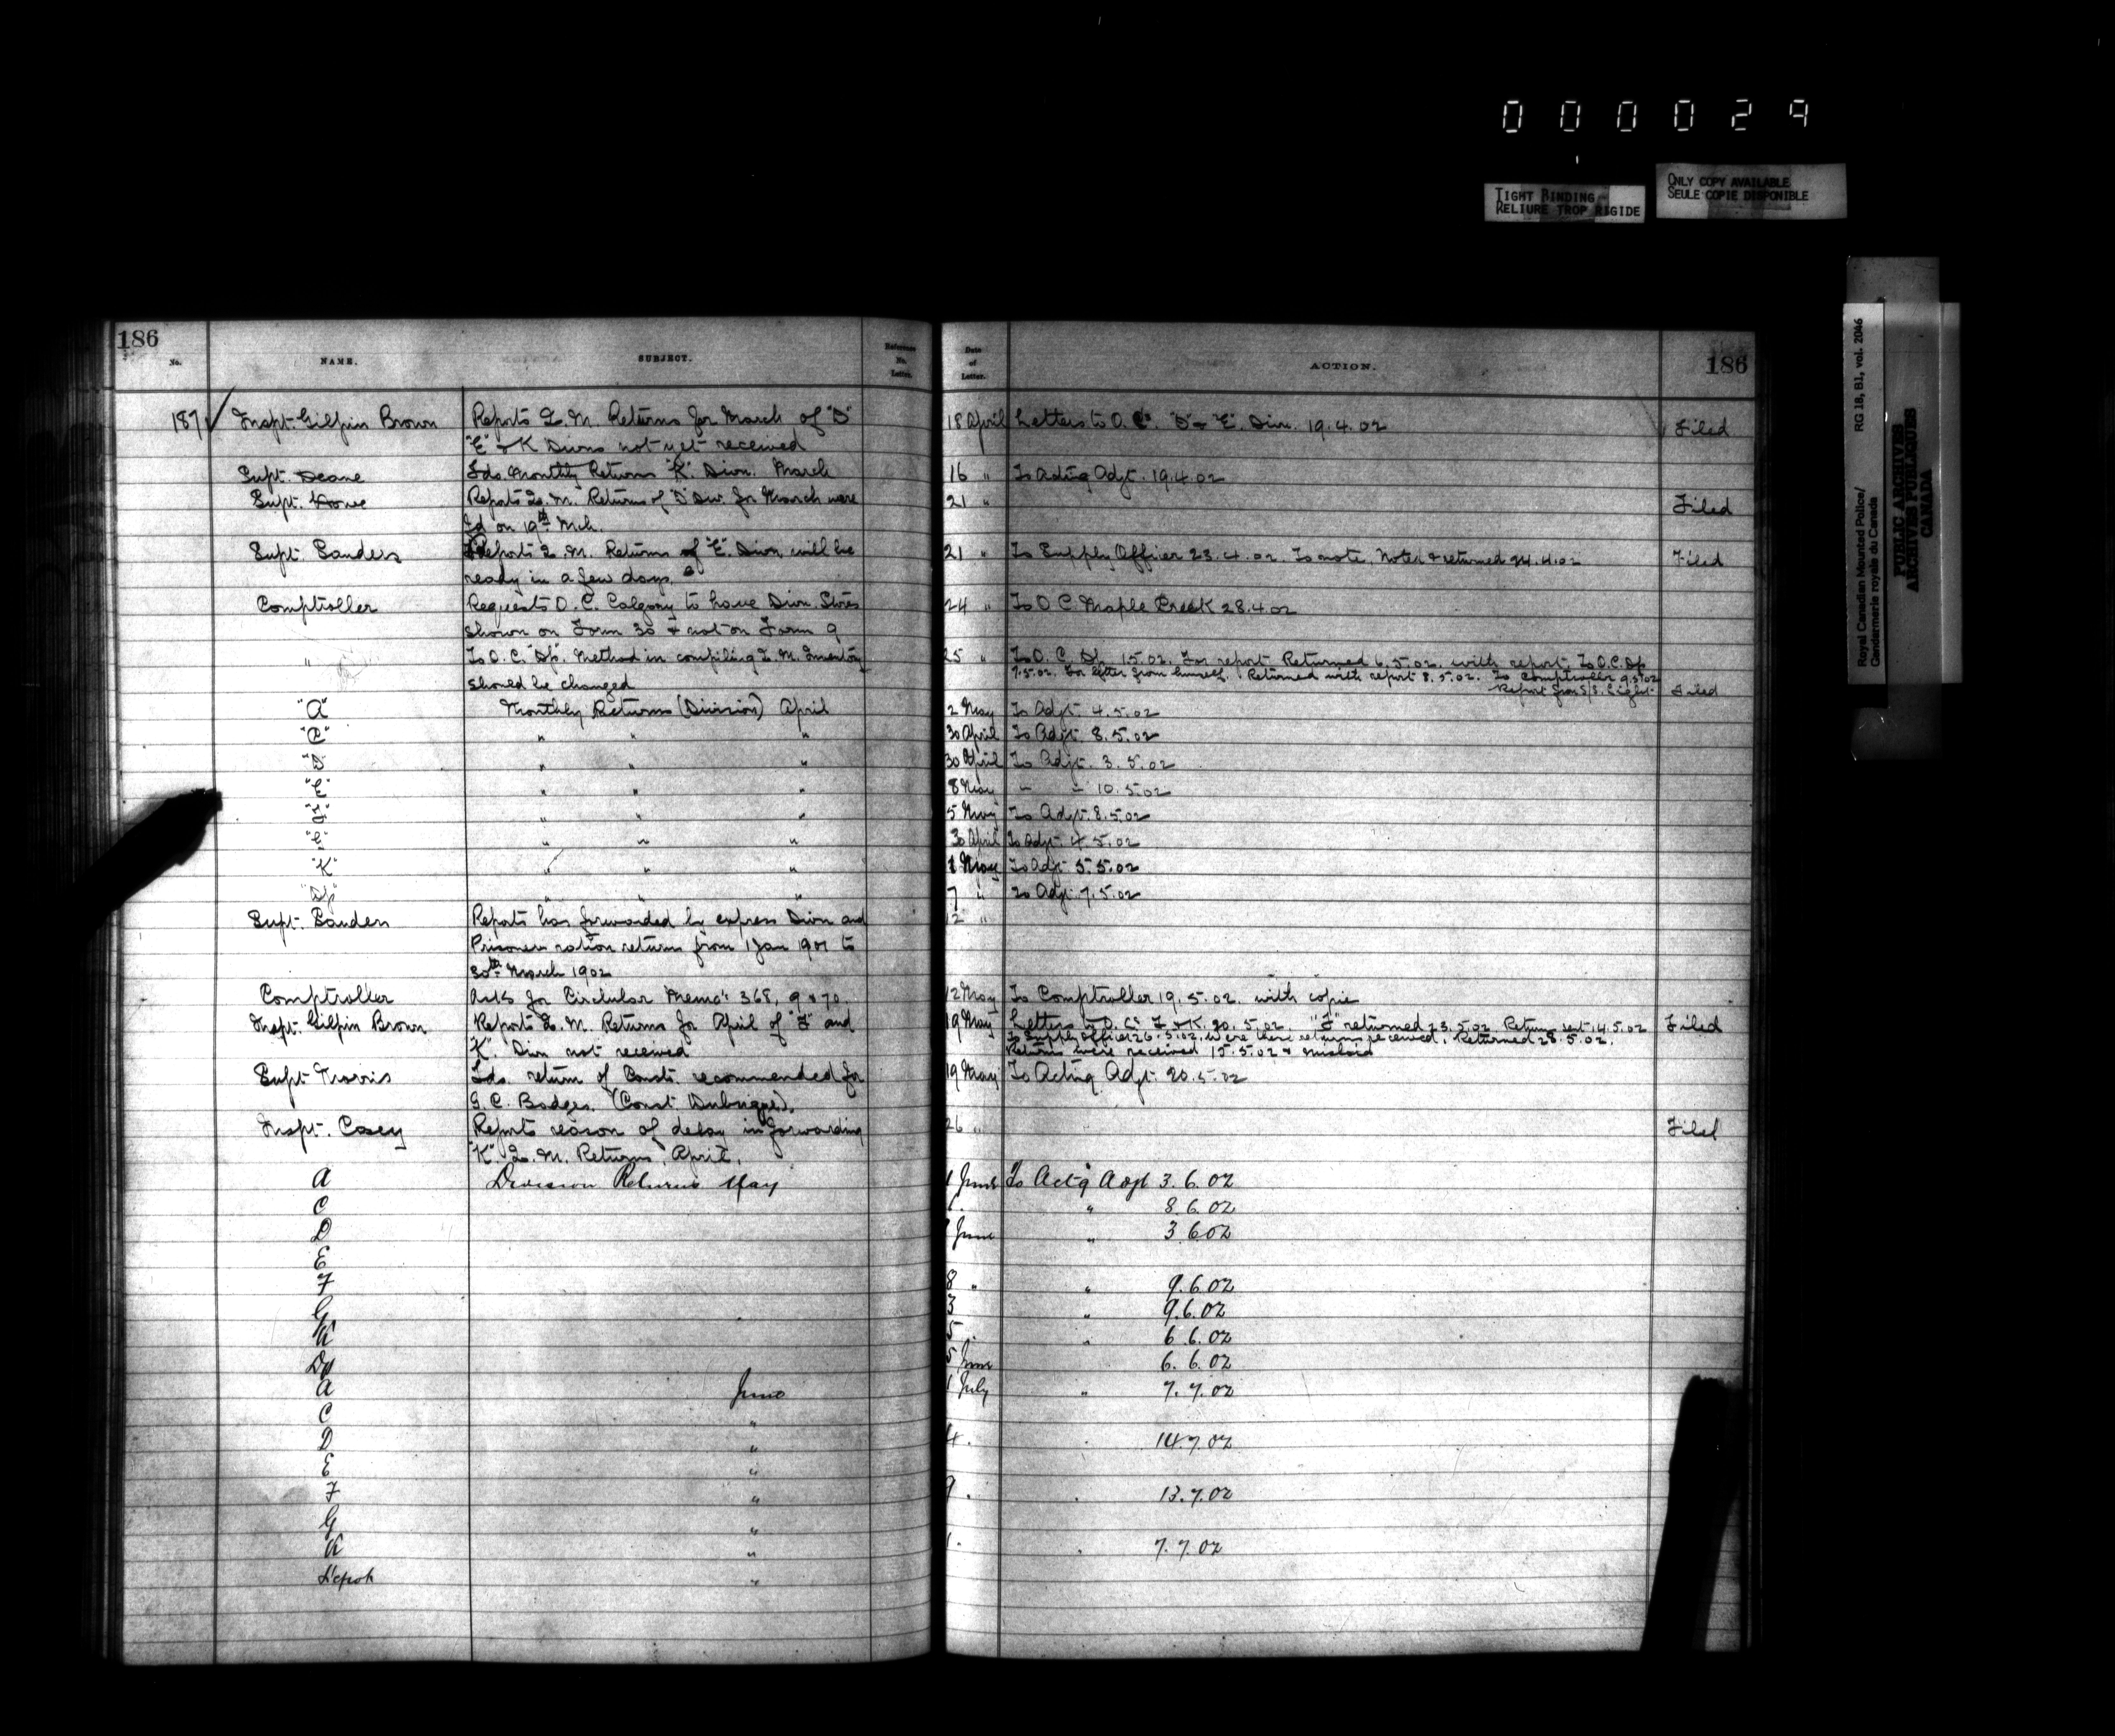 0 0 0 0 2 9
TIGHT BINDING
RELIURE TROP RIGIDE
ONLY COPY AVAILABLE
SEULE COPIE DISPONIBLE
Royal Canadian Mounted Police/ RG 18, B1, vol. 2046
Gendarmerie royale du Canada
PUBLIC ARCHIVES
ARCHIVES PUBLIQUES
CANADA
186 186
No. NAME. SUBJECT. Reference No. Letter. Date of Letter. ACTION.
187 Inspt. Gilpin Brown Reports Q. M. Returns for March of "D" 18 April Letters to O. C. "D" & "E" Divn. 19.4.02 Filed
"E" & K Divns not yet received
Supt. Deane Fds. Monthly Returns "K" Divn. March 16 " To Acting Adjt. 19.4.02
Supt. Howe Reports Q. M. Returns of "D" Div. for March were 21 " Filed
fd on 19th Mch.
Supt Sanders Reports Q. M. Returns of "E" Divn will be 21 " To Supply Officer 23.4.02. To note. Noted & returned 24.4.02 Filed
ready in a few days.
Comptroller Requests O. C. Calgary to have Divn. Stores 24 " To O C Maple Creek 28.4.02
shown on Form 30 & not on Form 9
" To O. C. "Dp". Method in compiling Q. M. Inventory 25 " To O. C. Dp. 1.5.02. For report Returned 6.5.02. with report. To O.C. Dp
should be changed 7.5.02. For letter from himself. Returned with report 8.5.02. To Comptroller 9.5.02
Report from S/S. Light Filed
"A" Monthly Returns (Division) April 2 May To Adjt. 4.5.02
"C" " " " 30 April To Adjt. 8.5.02
"D" " " " 30 April To Adjt. 3.5.02
"E" " " " 8 May " " 10.5.02
"F" " " " 5 May To Adjt. 8.5.02
"G" " " " 30 April To Adjt. 4.5.02
"K" " " " 1 May To Adjt 5.5.02
"Dp" " " " 7 " To Adjt. 7.5.02
Supt. Sanders Reports has forwarded by express Divn and 12 "
Prisoners ration returns from 1 Jan 1901 to
30th March 1902
Comptroller Asks for Circular Memo's 368, 9 & 70. 12 May To Comptroller 19.5.02. with copie
Inspt. Gilpin Brown Reports Q. M. Returns for April of "F" and 19 May Letters to O. C's F & K. 20.5.02. "F" returned 23.5.02. Return sent 14.5.02 Filed
"K". Divn not received To Supply Officer 26.5.02. Were these returns received. Returned 28.5.02.
Returns were received 15.5.02 & mislaid
Supt Morris Fds. return of Consts. recommended for 19 May To Acting Adjt. 20.5.02
G. C. Badges.
Inspt. Casey Reports reason of delay in forwarding 26 " Filed
"K". Q. M. Returns, April.
A Division Returns May 1 June To Actg Adjt 3.6.02
C " 8.6.02
D June " 3 6 02
E
F 8 " " 9.6.02
G 3 " 9.6.02
K 5 " 6.6.02
Dp 5 June 6.6.02
A June 1 July " 7.7.02
C "
D " 4. 14.7.02
E "
F " 9. 13.7.02
G "
K " 1. 7.7.02
Depot "